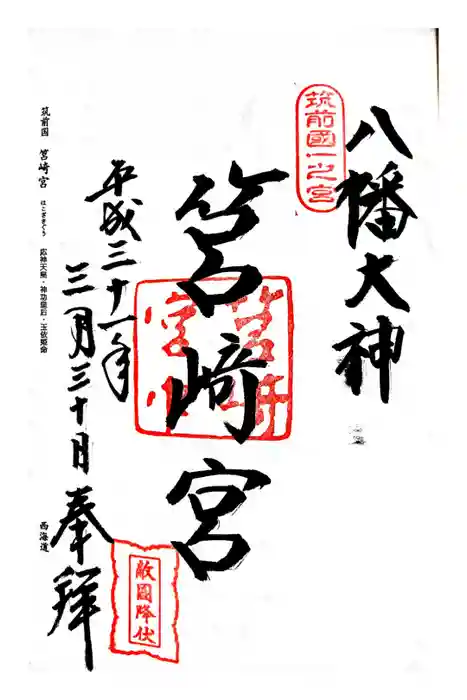 八幡大神
筑前國一之宮
筥崎宮
敵國降伏
平成三十一年
三月三十日
奉拝
筑前国 筥崎宮 はこざきぐう 応神天皇・神功皇后・玉依姫命
西海道